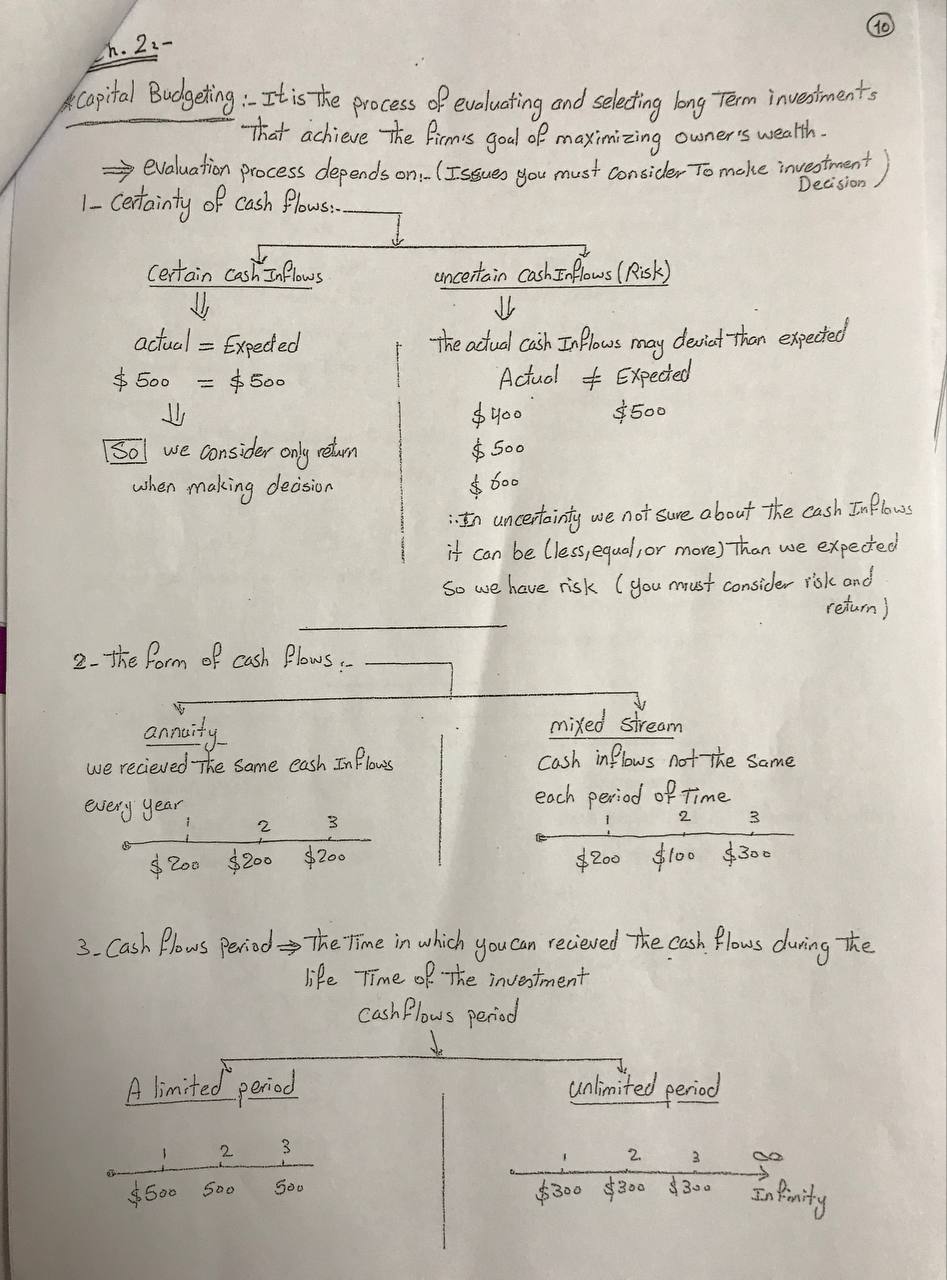 10
h. 2:-
*Capital Budgeting :- It is The process of evaluating and selecting long Term investments
That achieve The firm's goal of maximizing owner's wealth.
⇒ evaluation process depends on:- (Issues you must Consider To make investment
Decision)
1- Certainty of cash flows:-
Certain cash Inflows
uncertain cash Inflows (Risk)
actual = Expected
$500 = $500
So we consider only return
when making decision
The actual cash Inflows may deviat Than expected
Actual ≠ Expected
$400 $500
$500
$600
∴ In uncertainty we not sure about The cash Inflows
it can be (less, equal, or more) Than we expected
So we have risk (you must consider risk and
return)
2- The form of cash flows :-
annuity
we recieved The same cash Inflows
every year
1 2 3
$200 $200 $200
mixed stream
Cash inflows not The Same
each period of Time
1 2 3
$200 $100 $300
3- Cash flows period ⇒ The Time in which you can recieved The cash flows during The
life Time of The investment
Cash flows period
A limited period
1 2 3
$500 500 500
unlimited period
1 2 3 ∞
$300 $300 $300 Infinity